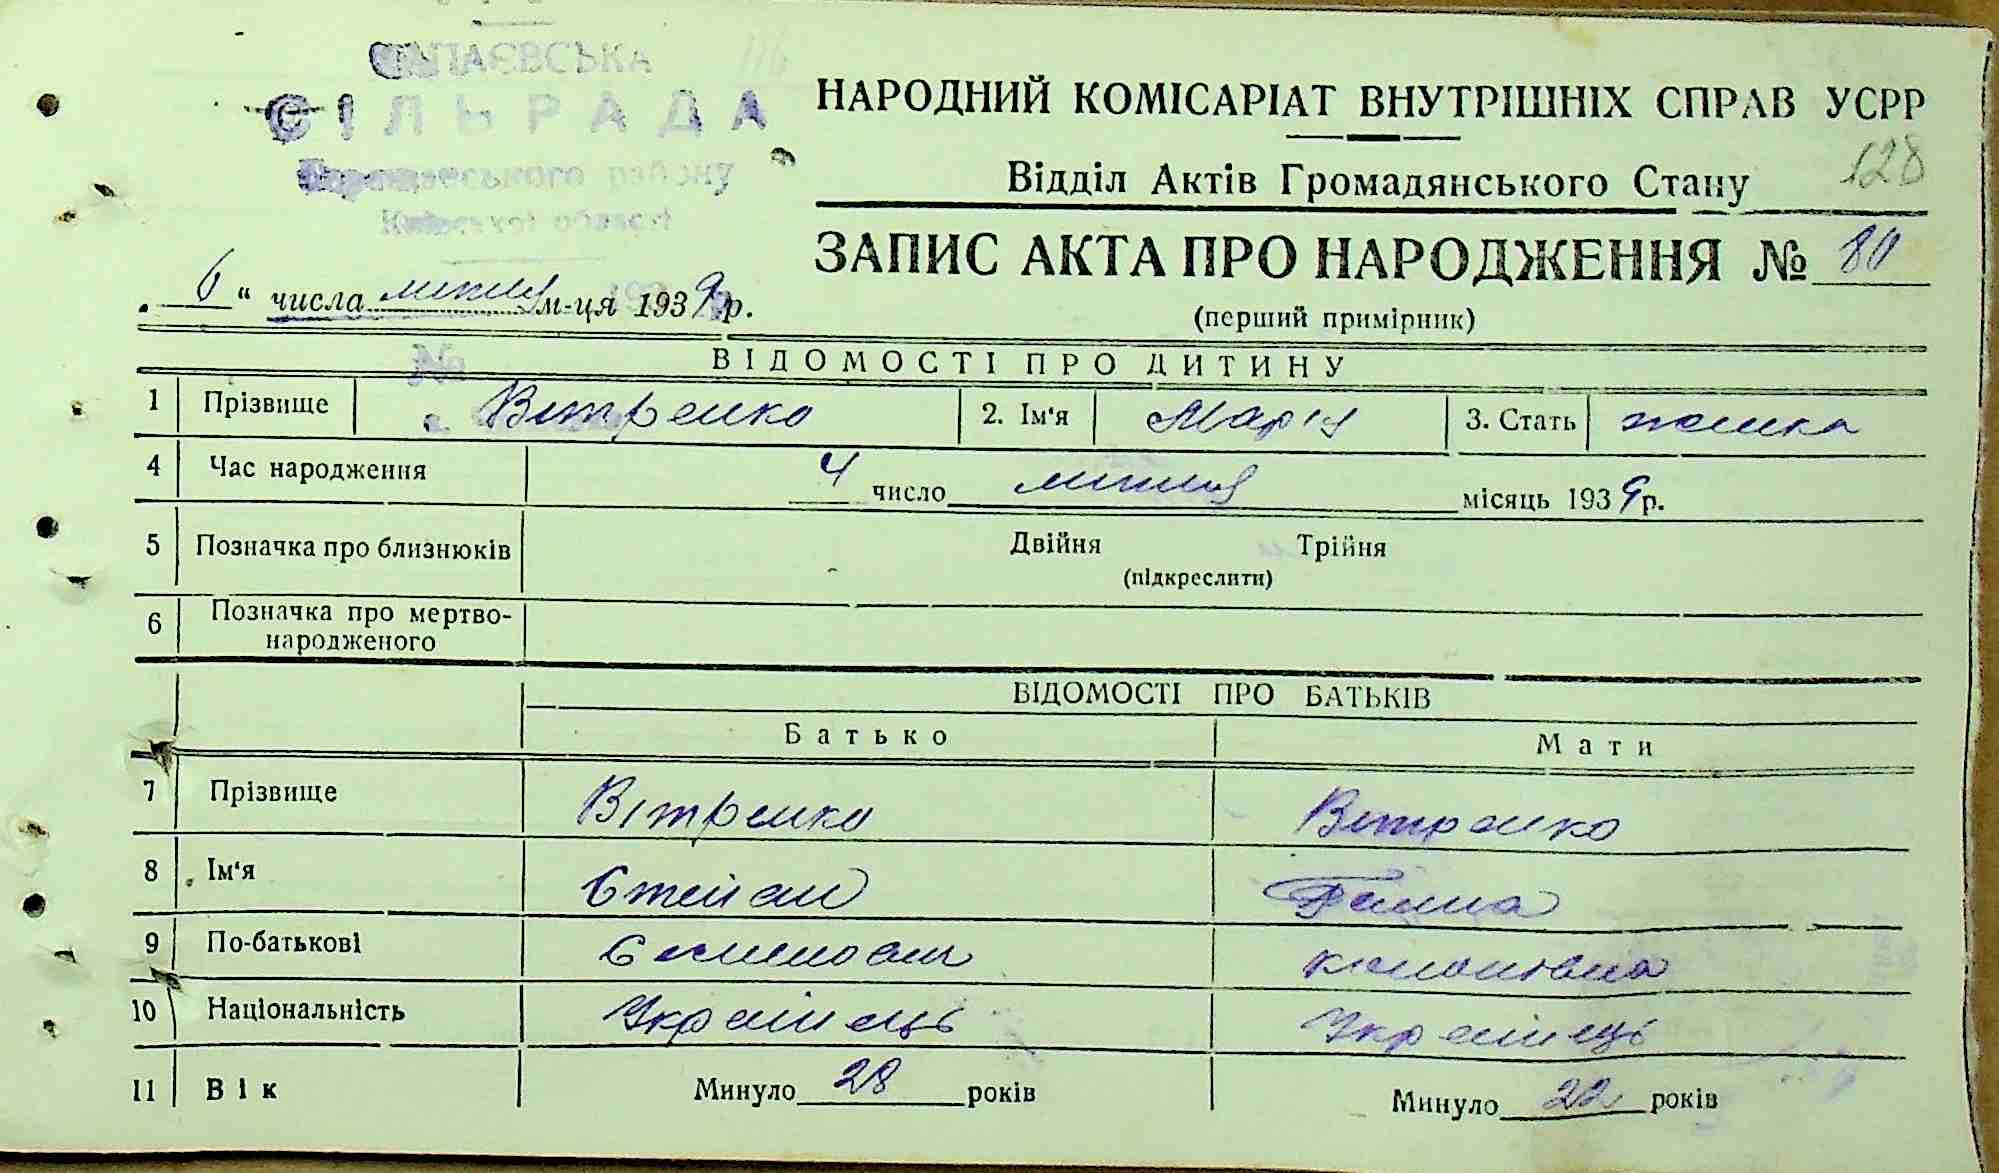 ЧАПАЄВСЬКА
СІЛЬРАДА
району
Київської області
НАРОДНИЙ КОМІСАРІАТ ВНУТРІШНІХ СПРАВ УСРР
Відділ Актів Громадянського Стану
128
ЗАПИС АКТА ПРО НАРОДЖЕННЯ № 80
(перший примірник)
„ 6 “ числа липня м-ця 1939 р.
№
ВІДОМОСТІ ПРО ДИТИНУ
1 Прізвище Вітренко 2. Ім'я Марія 3. Стать жінка
4 Час народження 4 число липня місяць 1939 р.
5 Позначка про близнюків Двійня Трійня
(підкреслити)
6 Позначка про мертво-
народженого
ВІДОМОСТІ ПРО БАТЬКІВ
Батько Мати
7 Прізвище Вітренко Вітренко
8 Ім'я Степан Ганна
9 По-батькові
10 Національність Українець Українець
11 Вік Минуло 28 років Минуло 22 років